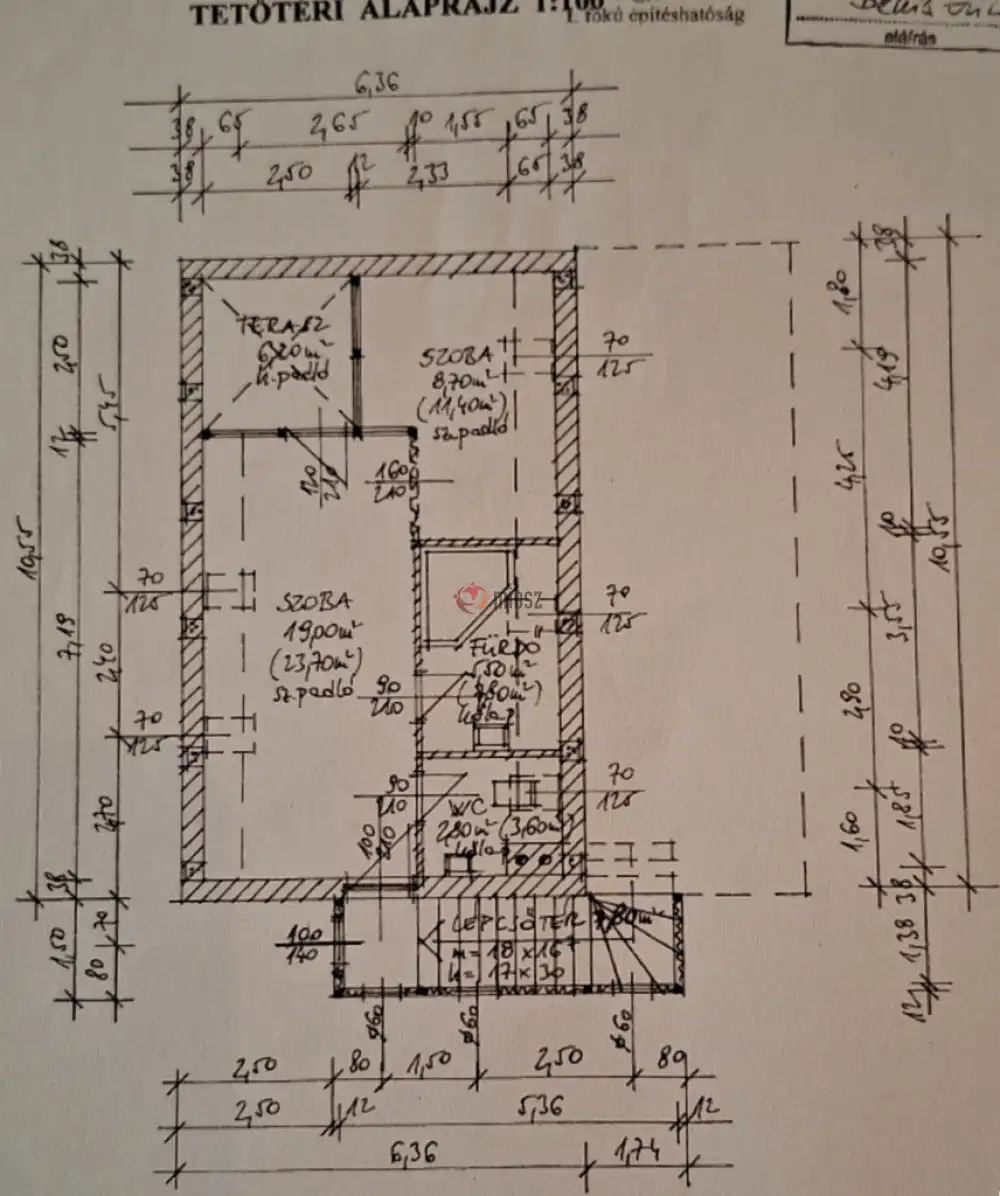 TETŐTÉRI ALAPRAJZ 1:100
I. fokú építéshatóság
aláírás
6,36
38 65 2,65 10 1,55 65 38
38 2,50 12 2,33 65 38
TERASZ
6,20m²
k.padló
SZOBA
8,70m²
(11,40m²)
sz.padló
70
125
120
210
160
210
70
125
SZOBA
19,00m²
(23,70m²)
sz.padló
70
125
FÜRDŐ
5,50m²
(7,80m²)
90
210
70
125
90
210
WC
2,80m² (3,60m²)
70
125
100
210
100
140
LÉPCSŐTÉR 7,80m²
m= 18 x 16
k= 17 x 30
ø60
ø60
ø60
38
2,50
12
7,19
38
1,50
10,55
5,45
2,40
2,70
70
80
1,80
4,25
2,90
1,60
38
4,19
10
3,55
10
1,85
38
1,38
12
10,55
2,50 80 1,50 2,50 80
2,50 12 5,36 12
6,36 1,74